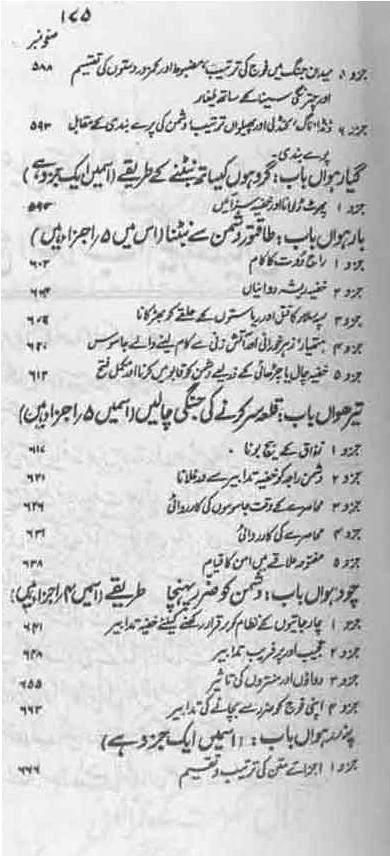 ۱۷۵
صفحہ نمبر
جزو ۵ میدان جنگ میں فوج کی ترتیب، مضبوط اور کمزور دستوں کی تقسیم ۵۸۸
اور چترنگی سینا کے ساتھ یلغار
جزو ۶ ڈنڈا، ناگ، کنڈلی اور پھیلواں ترتیب، دشمن کی پرے بندی کے مقابل ۵۹۳
پرے بندی۔
گیارہواں باب: گروہوں کیساتھ نبٹنے کے طریقے (اسمیں ایک جزو ہے)
جزو ۱ پھوٹ ڈلوانا اور خفیہ سزائیں ۵۹۳
بارہواں باب: طاقتور دشمن سے نبٹنا (اس میں ۵ راجزاء ہیں)
جزو ۱ راج دوت کا کام ۶۰۲
جزو ۲ خفیہ ریشہ دوانیاں
جزو ۳ سپہ سلار کا قتل اور ریاستوں کے حلقے کو بھڑکانا
جزو ۴ ہتھیار، زہر خورانی اور آتش زنی سے کام لینے والے جاسوس
جزو ۵ خفیہ چال یا چڑھائی کے ذریعے دشمن کو قابو میں کرنا اور مکمل فتح ۶۱۳
تیرھواں باب: قلعہ سر کرنے کی جنگی چالیں (اسمیں ۵ راجزاء ہیں)
جزو ۱ نفاق کے بیج بونا ۶۱۷
جزو ۲ دشمن راجہ کو خفیہ تدابیر سے ورغلانا ۶۲۱
جزو ۳ محاصرے کے وقت جاسوسوں کی کارروائی ۶۲۶
جزو ۴ محاصرے کی کارروائی ۶۳۱
جزو ۵ مفتوحہ علاقے میں امن کا قیام ۶۳۸
چودہواں باب: دشمن کو ضرر پہنچا طریقے (اسمیں ۴ راجزاء ہیں)
جزو ۱ چار جاتیوں کے نظام کو برقرار رکھنے کیلئے خفیہ تدابیر ۶۴۱
جزو ۲ عجیب اور پر فریب تدابیر ۶۴۸
جزو ۳ دواؤں اور منتروں کی تاثیر ۶۵۵
جزو ۴ اپنی فوج کو ضرر سے بچانے کی تدابیر ۶۶۳
پندرہواں باب: (اسمیں ایک جزو ہے)
جزو ۱ اجزائے متن کی ترتیب و تقسیم ۶۶۶